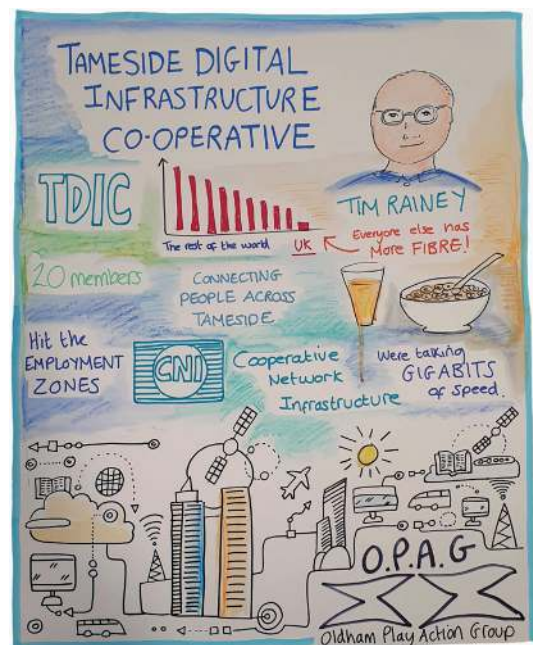 TAMESIDE DIGITAL
INFRASTRUCTURE
CO-OPERATIVE
TDIC
The rest of the world
UK
TIM RAINEY
Everyone else has
More FIBRE!
20 members
CONNECTING
PEOPLE ACROSS
TAMESIDE
Hit the
EMPLOYMENT
ZONES
CNI
Cooperative
Network
Infrastructure
We're talking
GIGABITS
of speed.
O.P.A.G
Oldham Play Action Group